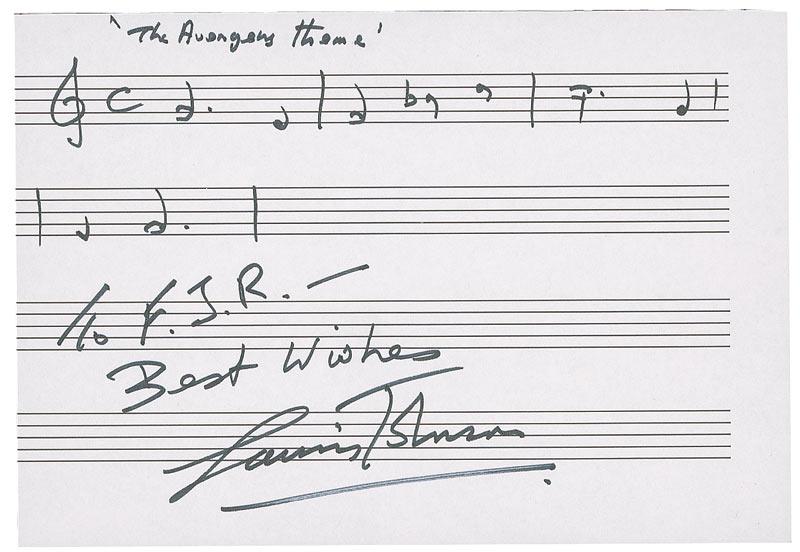 'The Avengers theme'
To F.J.R. —
Best Wishes
Laurie Johnson